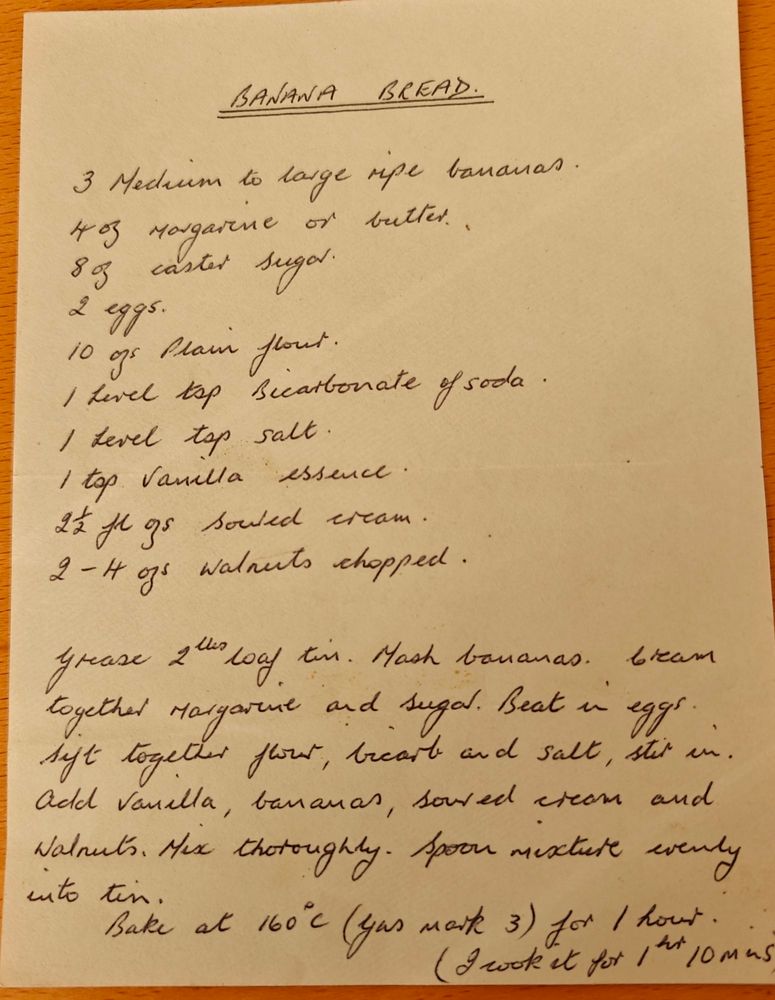 BANANA BREAD.
3 Medium to large ripe bananas.
4 oz margarine or butter.
8 oz caster sugar.
2 eggs.
10 ozs Plain flour.
1 Level tsp Bicarbonate of soda.
1 Level tsp salt.
1 tsp Vanilla essence.
2½ fl ozs soured cream.
2 - 4 ozs walnuts chopped.
Grease 2lbs loaf tin. Mash bananas. Cream
together margarine and sugar. Beat in eggs.
Sift together flour, bicarb and salt, stir in.
Add Vanilla, bananas, soured cream and
walnuts. Mix thoroughly. Spoon mixture evenly
into tin.
Bake at 160°C (Gas mark 3) for 1 hour.
(I cook it for 1hr 10 mins